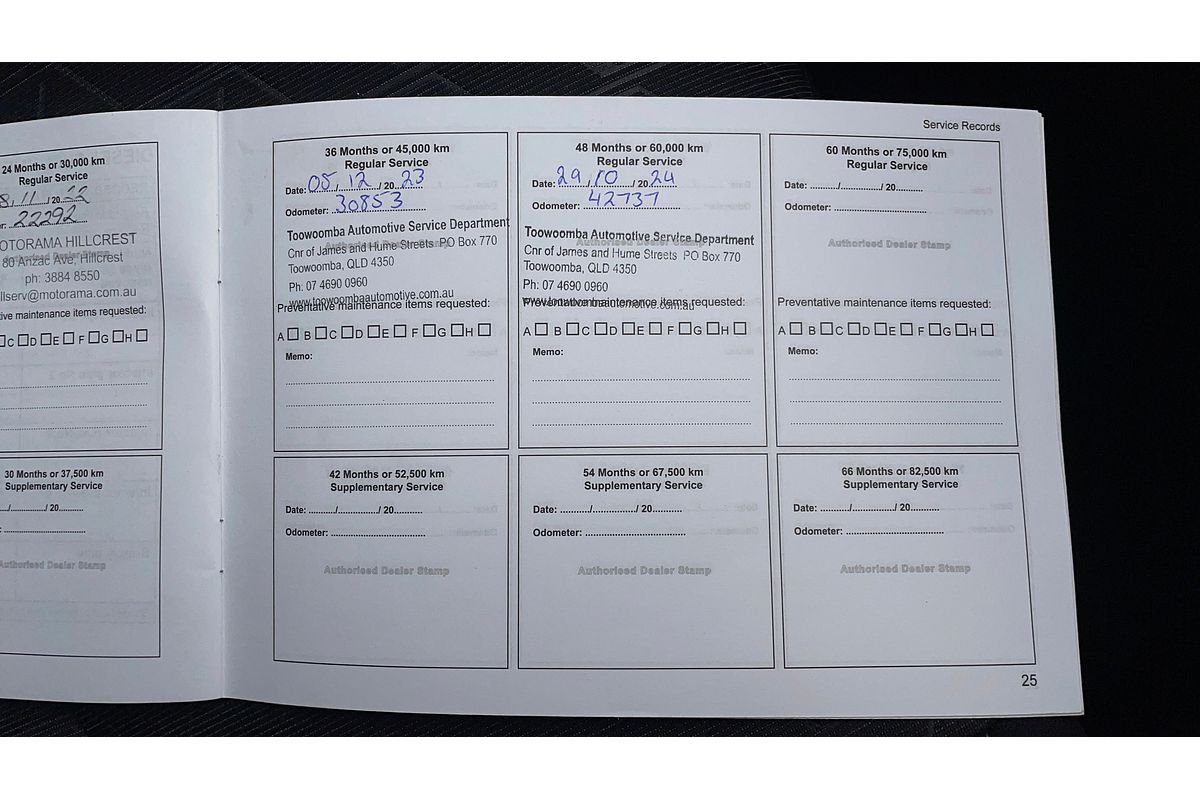 Service Records
24 Months or 30,000 km
Regular Service
8/11/2022
22292
MOTORAMA HILLCREST
80 Anzac Ave, Hillcrest
Authorised Dealer Stamp
ph: 3884 8550
llserv@motorama.com.au
ive maintenance items requested:
C D E F G H
30 Months or 37,500 km
Supplementary Service
/ / 20
Authorised Dealer Stamp
36 Months or 45,000 km
Regular Service
Date: 05/12/2023
Odometer: 30853
Toowoomba Automotive Service Department
Authorised Dealer Stamp
Cnr of James and Hume Streets PO Box 770
Toowoomba, QLD 4350
Ph: 07 4690 0960
www.toowoombaautomotive.com.au
Preventative maintenance items requested:
A B C D E F G H
Memo:
42 Months or 52,500 km
Supplementary Service
Date: ........../............/ 20..........
Odometer: ..................................
Authorised Dealer Stamp
48 Months or 60,000 km
Regular Service
Date: 29/10/2024
Odometer: 42737
Toowoomba Automotive Service Department
Authorised Dealer Stamp
Cnr of James and Hume Streets PO Box 770
Toowoomba, QLD 4350
Ph: 07 4690 0960
www.toowoombaautomotive.com.au
Preventative maintenance items requested:
A B C D E F G H
Memo:
54 Months or 67,500 km
Supplementary Service
Date: ........../............/ 20..........
Odometer: ..................................
Authorised Dealer Stamp
60 Months or 75,000 km
Regular Service
Date: ........../............/ 20..........
Odometer: ..................................
Authorised Dealer Stamp
Preventative maintenance items requested:
A B C D E F G H
Memo:
66 Months or 82,500 km
Supplementary Service
Date: ........../............/ 20..........
Odometer: ..................................
Authorised Dealer Stamp
25